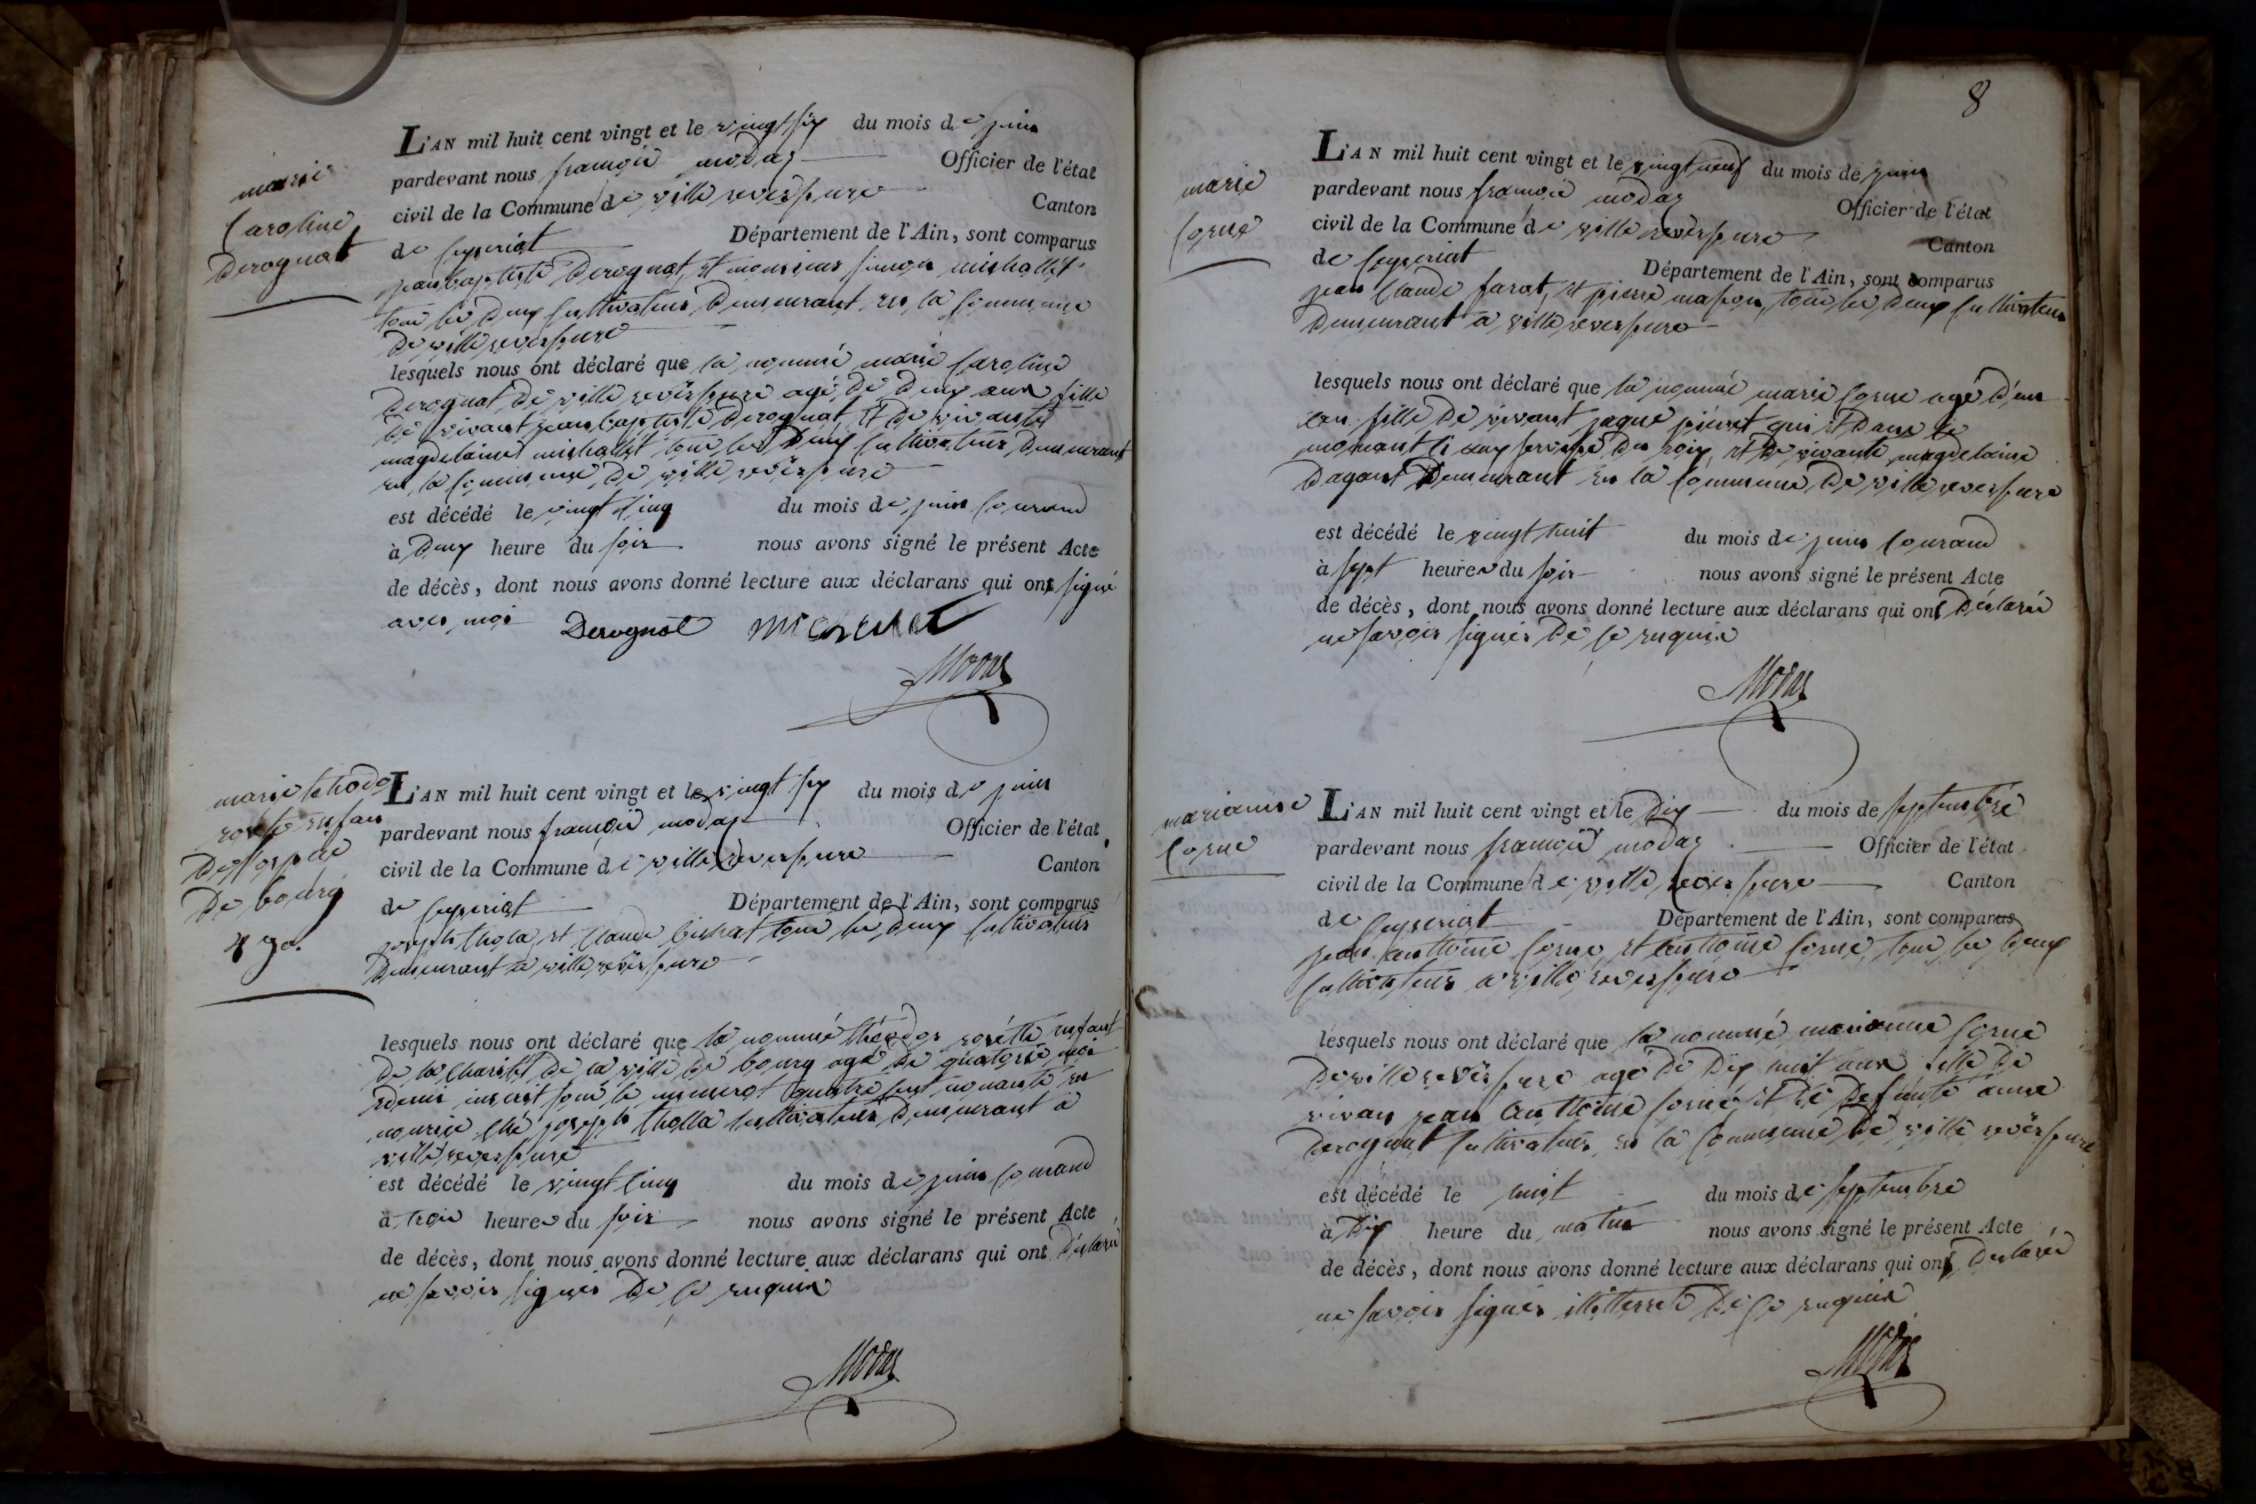 marie
Caroline
Derognat
L'AN mil huit cent vingt et le vingt six du mois de juin
pardevant nous françois modas Officier de l'état
civil de la Commune de ville reversure Canton
de Ceyseriat Département de l'Ain, sont comparus
jean baptiste Derognat, et monsieur simon michallet
tous les deux cultivateurs demeurant en la commune
de ville reversure
lesquels nous ont déclaré que la nommé marie Caroline
Derognat de ville reversure agé de deux ans fille
de vivant jean baptiste Derognat et de vivante
magdelaine michallet tous les deux cultivateurs demeurant
en la commune de ville reversure
est décédé le vingt cinq du mois de juin courand
à deux heure du soir nous avons signé le présent Acte
de décès, dont nous avons donné lecture aux déclarans qui ont signé
avec moi Derognat michelet
Modas
marie
rosette enfan
de lospice
de bourg
490.
L'AN mil huit cent vingt et le vingt six du mois de juin
pardevant nous françois modas Officier de l'état
civil de la Commune de ville reversure Canton
de Ceyseriat Département de l'Ain, sont comparus
joseph thola et Claude bichat tous les deux cultivateurs
demeurant a ville reversure
lesquels nous ont déclaré que la nommé théodor rosette enfant
de la charité de la ville de bourg agé de quatorse moi
et demi inscrit sous le numerot quatre cent nonante en
nourice ché joseph tholla cultivateur demeurant a
ville reversure
est décédé le vingt cinq du mois de juin courand
à trois heure du soir nous avons signé le présent Acte
de décès, dont nous avons donné lecture aux déclarans qui ont déclaré
ne savoir signer de ce enquis
Modas
8
marie
Corne
L'AN mil huit cent vingt et le vingt neuf du mois de juin
pardevant nous françois modas Officier de l'état
civil de la Commune de ville reversure Canton
de Ceyseriat Département de l'Ain, sont comparus
jean Claude farat, et pierre mason, tous les deux cultivateurs
demeurant a ville reversure
lesquels nous ont déclaré que la nommée marie Corne agé d'un
an fille de vivant jaque qui et dans le
momant si aux service du roix, et de vivante magdelaine
dagant demeurant en la commune de ville reversure
est décédé le vingt huit du mois de juin courand
à sept heure du soir nous avons signé le présent Acte
de décès, dont nous avons donné lecture aux déclarans qui ont déclaré
ne savoir signer de ce enquis
Modas
marianne
Corne
L'AN mil huit cent vingt et le dix du mois de septembre
pardevant nous françois modas Officier de l'état
civil de la Commune de ville reversure Canton
de Ceyseriat Département de l'Ain, sont comparus
jean anttoine Corne et anttoine Corne, tous les deux
cultivateurs a ville reversure
lesquels nous ont déclaré que la nommé marianne Corne
de ville reversure agé de dix huit ans fille de
vivan jean anttoine Corne et de defunte anne
derognat cultivateur en la commune de ville reversure
est décédé le huit du mois de septembre
à dix heure du matin nous avons signé le présent Acte
de décès, dont nous avons donné lecture aux déclarans qui ont déclaré
ne savoir signer de ce enquis
Modas